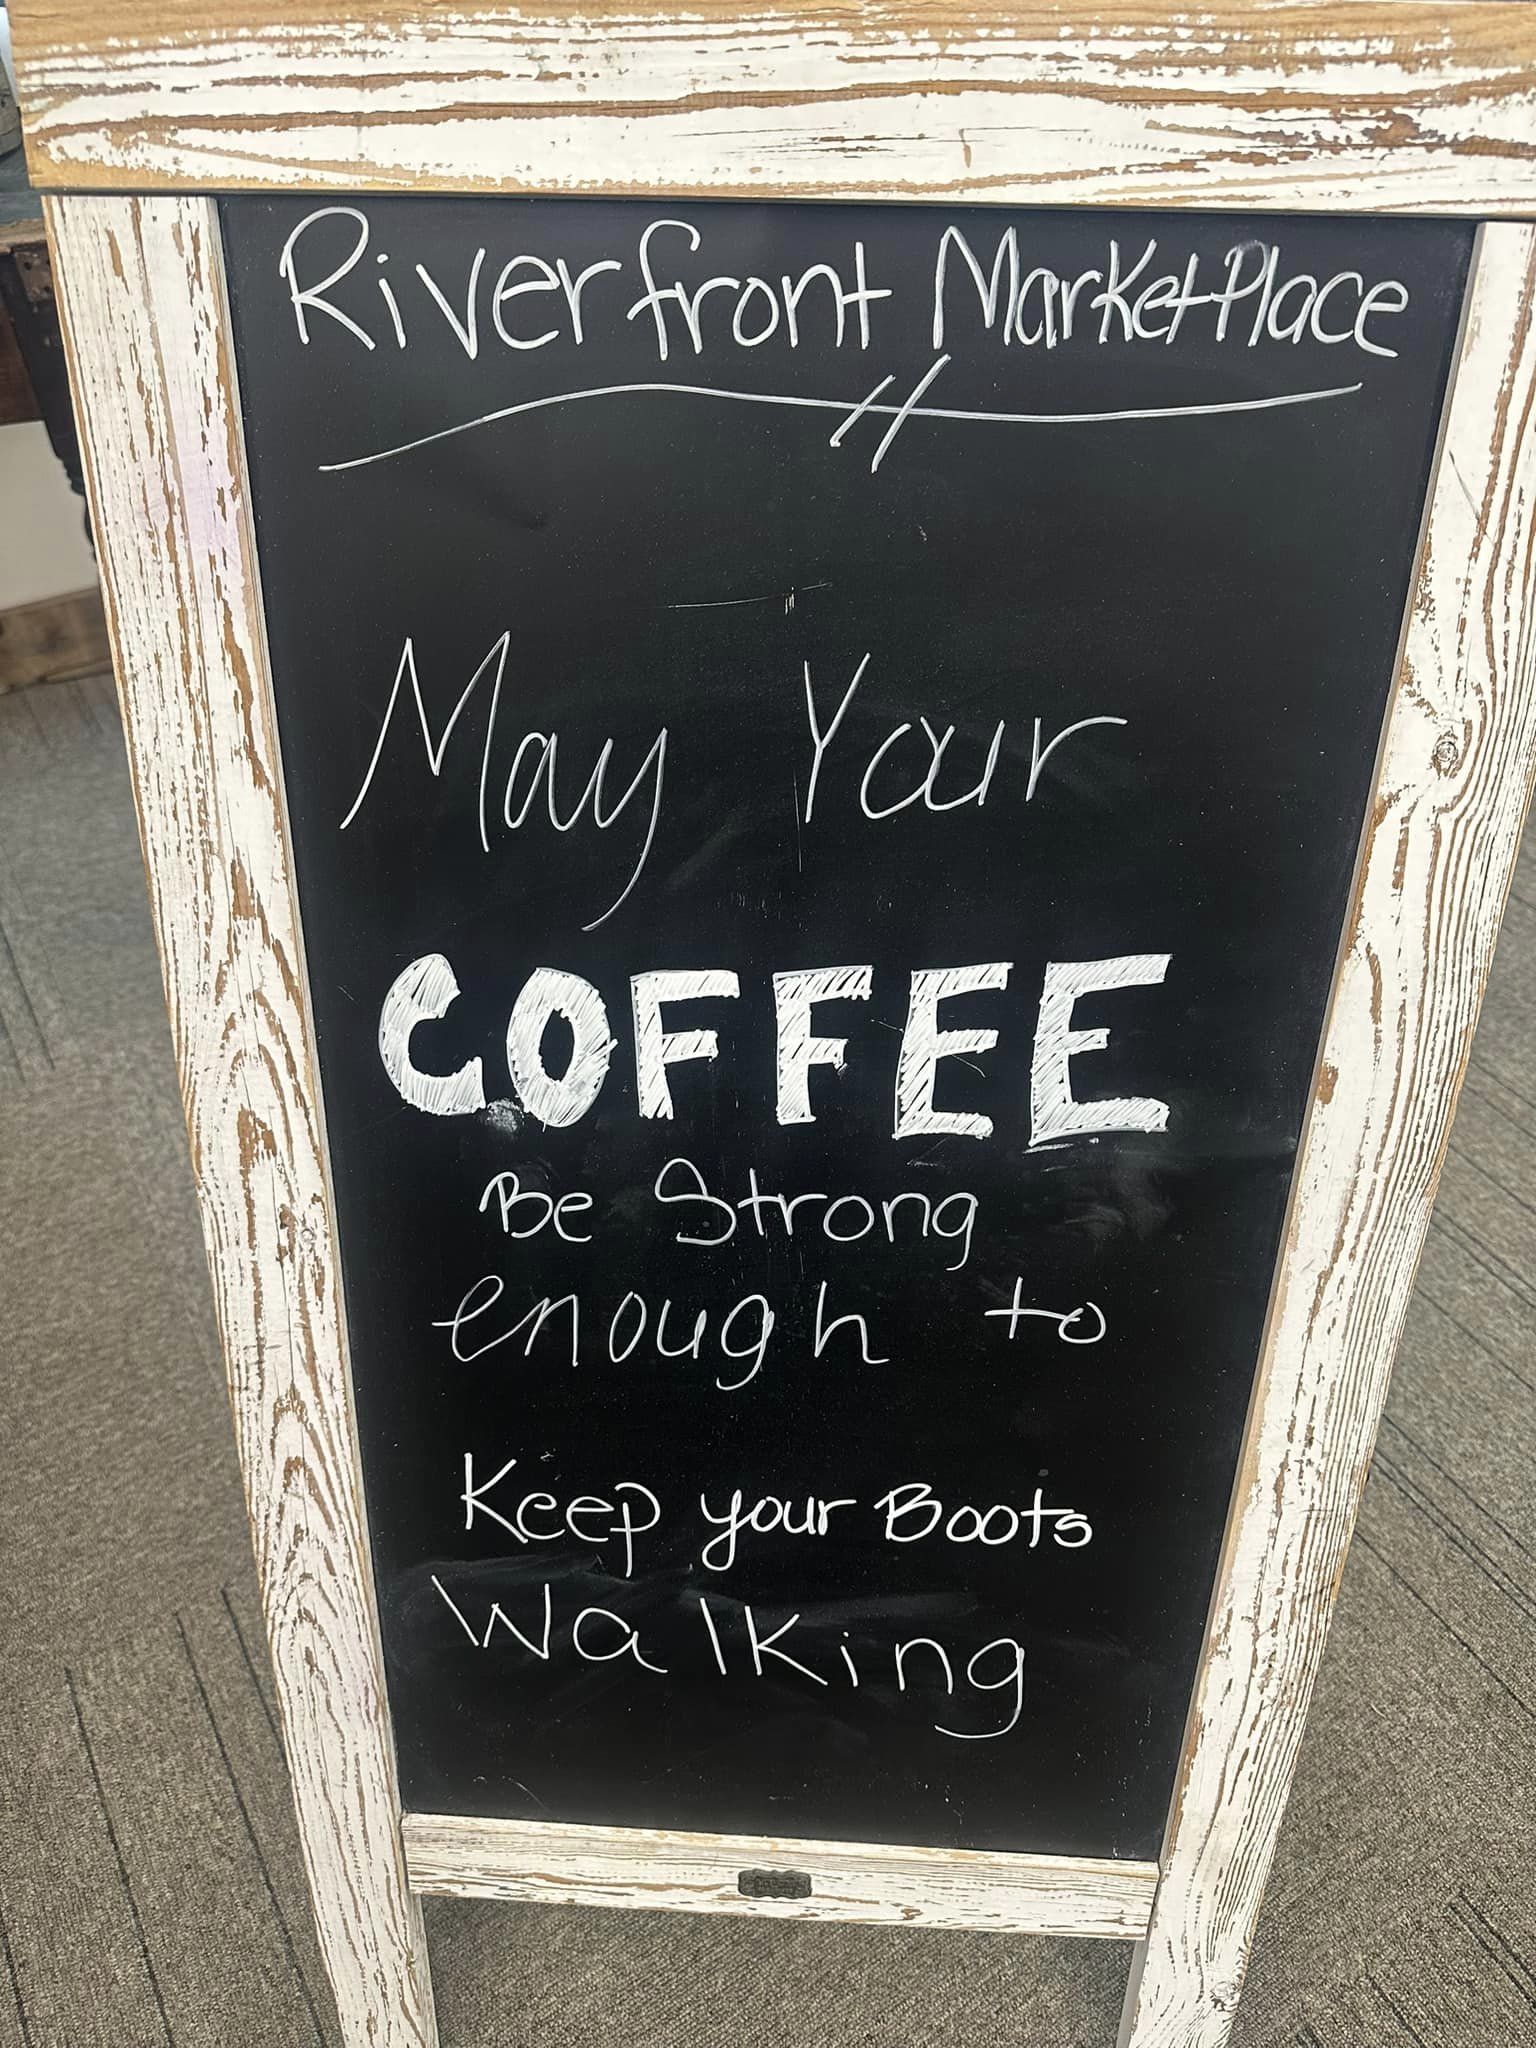 Riverfront MarketPlace
May Your
COFFEE
Be Strong
enough to
Keep your Boots
Walking